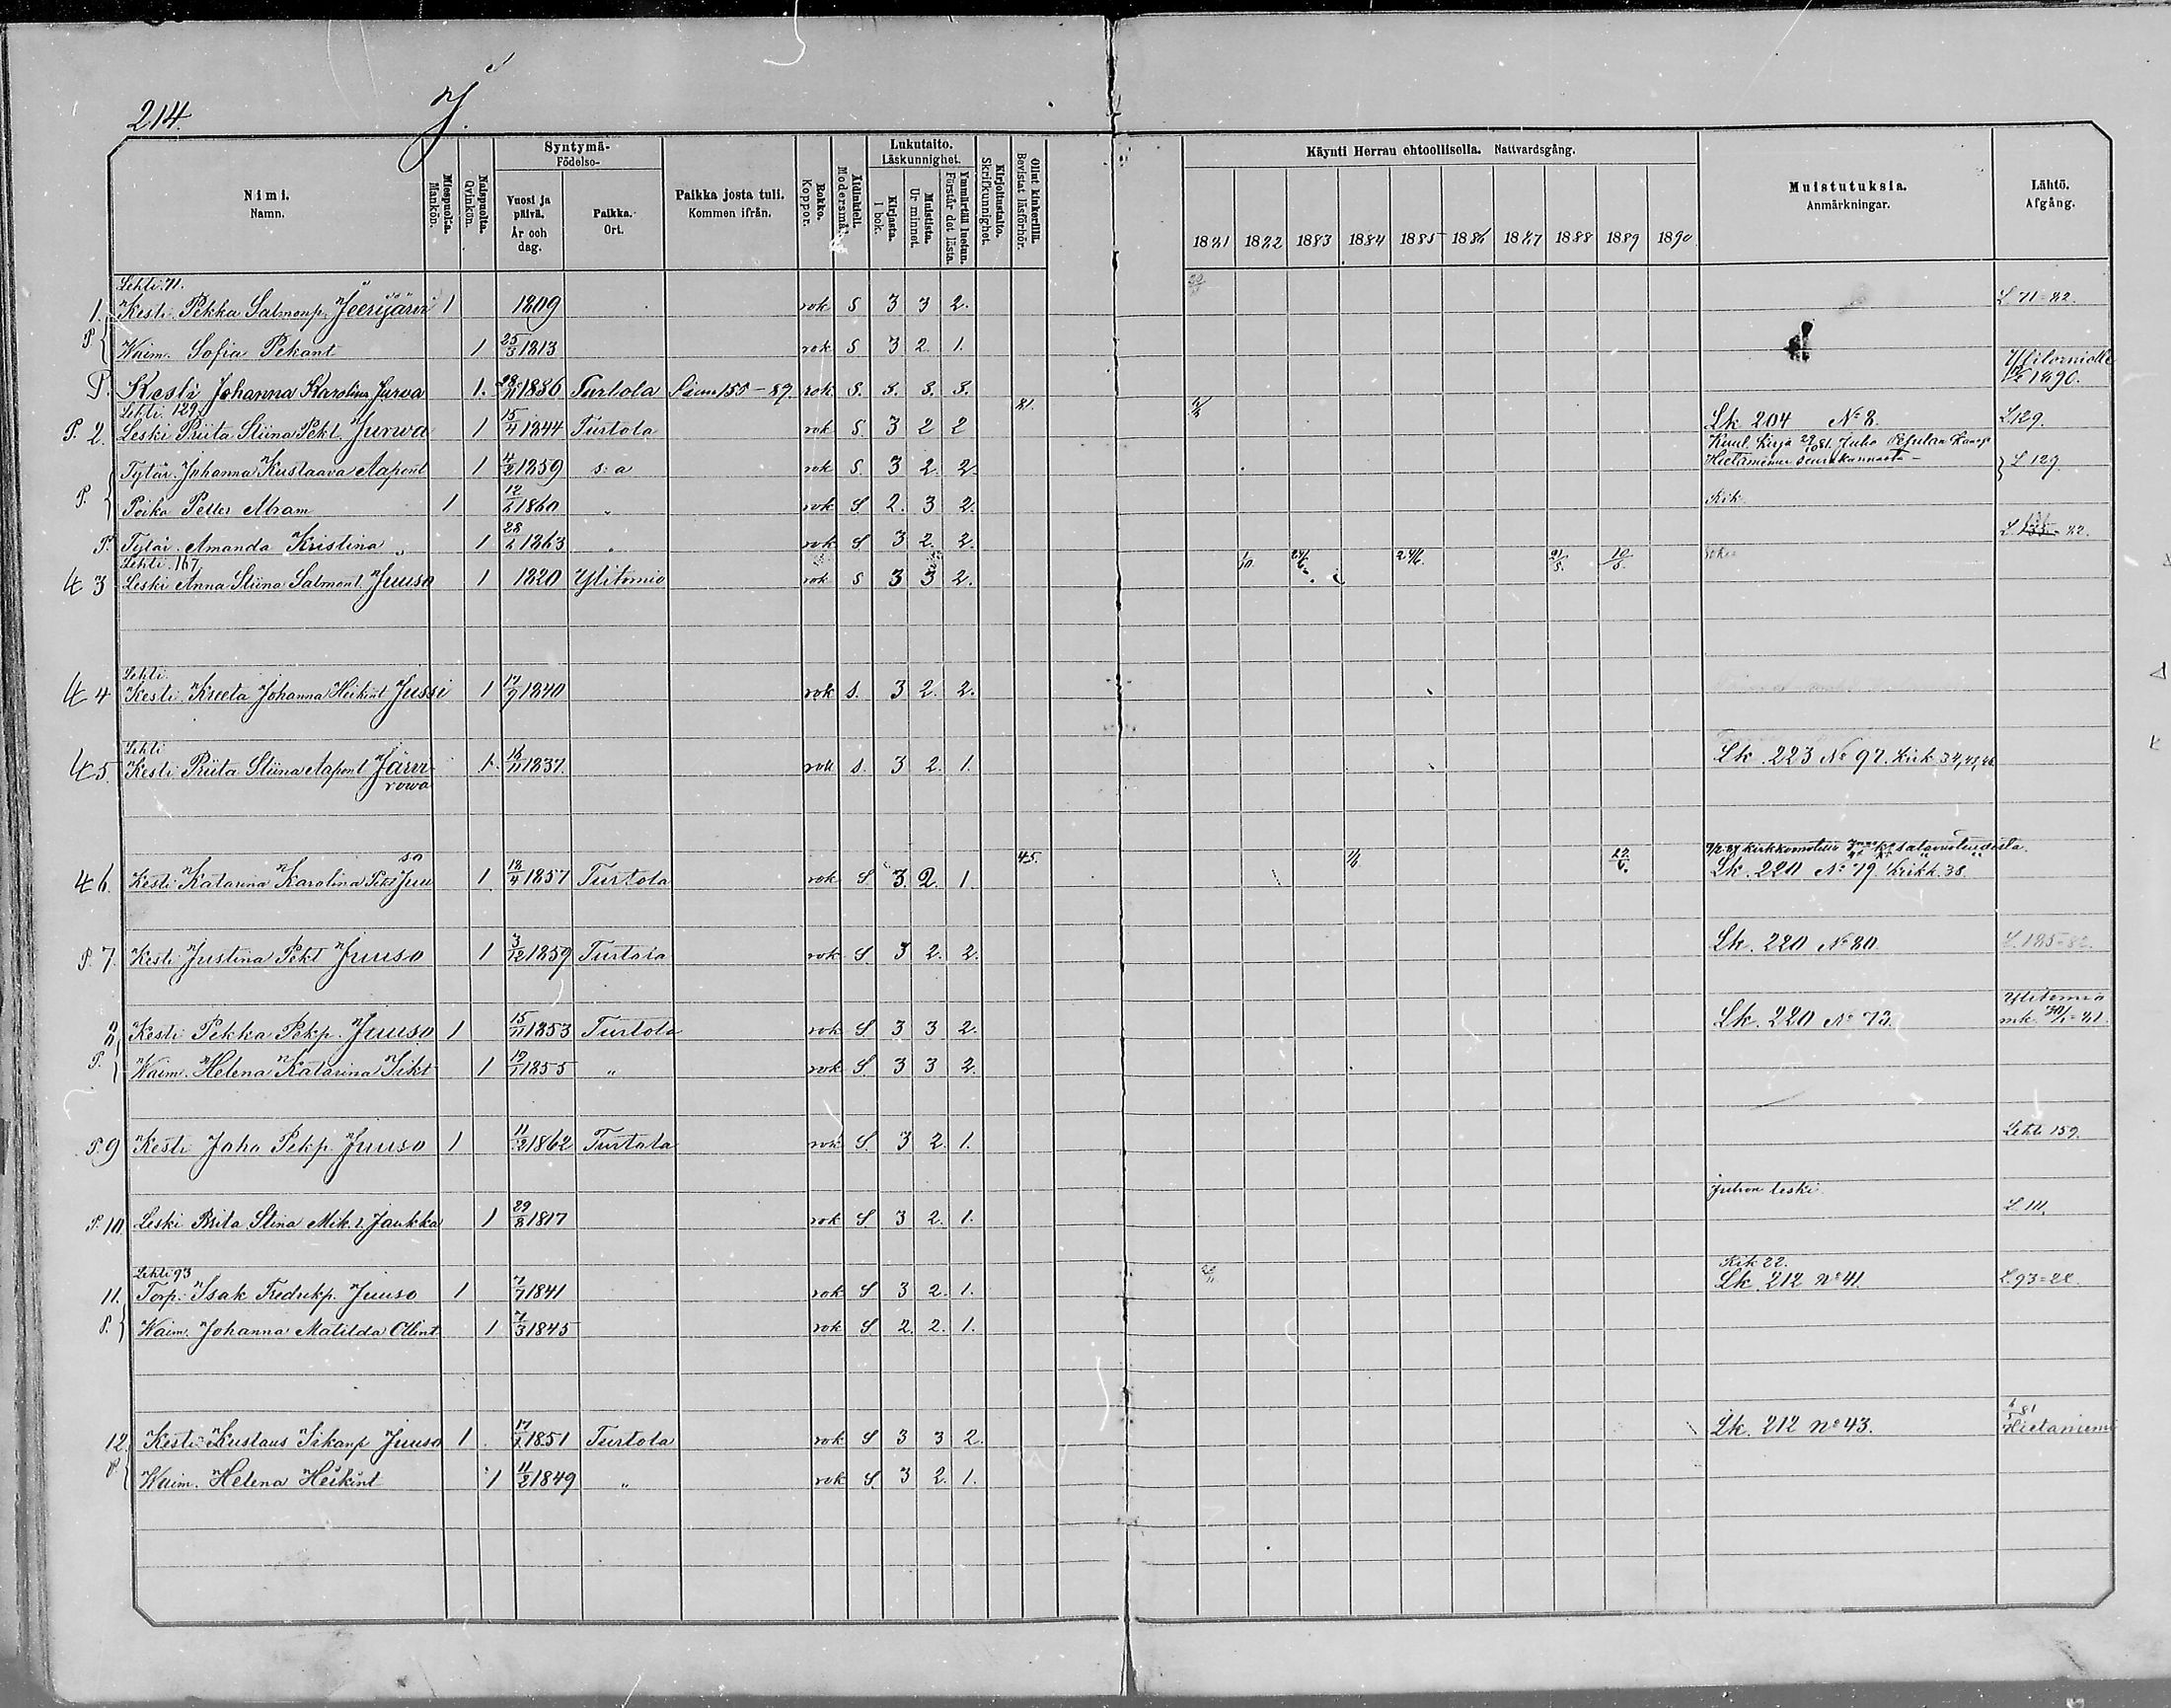 214.
J.
Nimi. Namn.
Miespuolia. Mankön.
Naispuolia. Qvinkön.
Syntymä- Födelse-
Vuosi ja päivä. År och dag.
Paikka. Ort.
Paikka josta tuli. Kommen ifrån.
Rokko. Koppor.
Äidinkieli. Modersmål.
Lukutaito. Läskunnighet.
Kirjasta. I bok.
Muistista. Ur minnet.
Ymmärtää luetun. Förstår det lästa.
Kirjoitustaito. Skrifkunnighet.
Ollut kinkerillä. Bevistat läsförhör.
Käynti Herran ehtoollisella. Nattvardsgång.
1881 1882 1883 1884 1885 1886 1887 1888 1889 1890
Muistutuksia. Anmärkningar.
Lähtö. Afgång.
Lehti. 71.
1. Kesti Pekka Salmonp. Jeerijärvi 1 1809 rok S 3 3 2. L 71=82.
P. Waim. Sofia Pekant 1 25/3 1813 rok S 3 2. 1.
P. Kesti Johanna Karolina Jurva 1. 1886 Turtola 155-89. rok. S. 3. 3. 3. Ylitorniolle 1890.
Lehti. 129. 81.
P. 2. Leski Priita Stiina Pekt. Jurwa 1 15/4 1844 Turtola rok S. 3 2 2 Lk 204 No 8. L 129.
Tytär. Johanna Kustaava Aapont 1 4/2 1859 s:a rok S. 3 2. 2. L 129
P. Poika Petter Abram 1 12/2 1860 " rok S. 2. 3 2. Rik
P. Tytär. Amanda Kristina " 1 28/2 1863 " rok S 3 2. 2. 82.
Lehti. 167 1/10 24/6 24/6. 21/5. 10/6.
3 Leski Anna Stiina Salmont. Juuso 1 1820 Ylitornio rok S 3 3 2.
Lehti.
4 Kesti. Kreeta Johanna Heikint Jussi 1 17/9 1840 rok S. 3 2. 2.
Lehti
5. Kesti Priita Stiina Aapont Järvirowa 1. 1837. rok S. 3 2. 1. Lk. 223 No 97.
so 45. 22/6.
6. Kesti Katarina Karolina Pekt Juu 1. 18/4 1857 Turtola rok S 3. 2. 1. Lk. 220 No 79. Krikk. 38.
P. 7. Kesti Justina Pekt Juuso 1 3/12 1859 Turtola rok S. 3 2. 2. Lk. 220 No 80. L. 185=82.
8. Kesti Pekka Pekp. Juuso 1 15/11 1853 Turtola rok S. 3 3 2. Lk. 220 No 73. Ylitornio mk. 81.
P. Waim. Helena Katarina Iikt 1 19/1 1855 " rok S. 3 3 2.
P. 9 Kesti Joho Pekp. Juuso 1 1862 Turtola rok S. 3 2. 1. Lehti 159.
P. 10 Leski Brita Stina Mik. t. Jaukka 1 29/8 1817 rok S 3 2. 1. leski. L. 111.
Lehti 93 Rik 22.
11. Torp. Isak Fredrikp. Juuso 1 7/7 1841 rok S 3 2. 1. Lk. 212 No 41. L. 93=
P. Waim. Johanna Matilda Ollint 1 7/3 1845 rok S 2. 2. 1.
12. Kesti Kustaus Iikanp Juuso 1 1851 Turtola rok S 3 3 2. Lk. 212 No 43. 81 Hietaniemi
P. Waim. Helena Heikint 1 11/2 1849 " rok S. 3 2. 1.